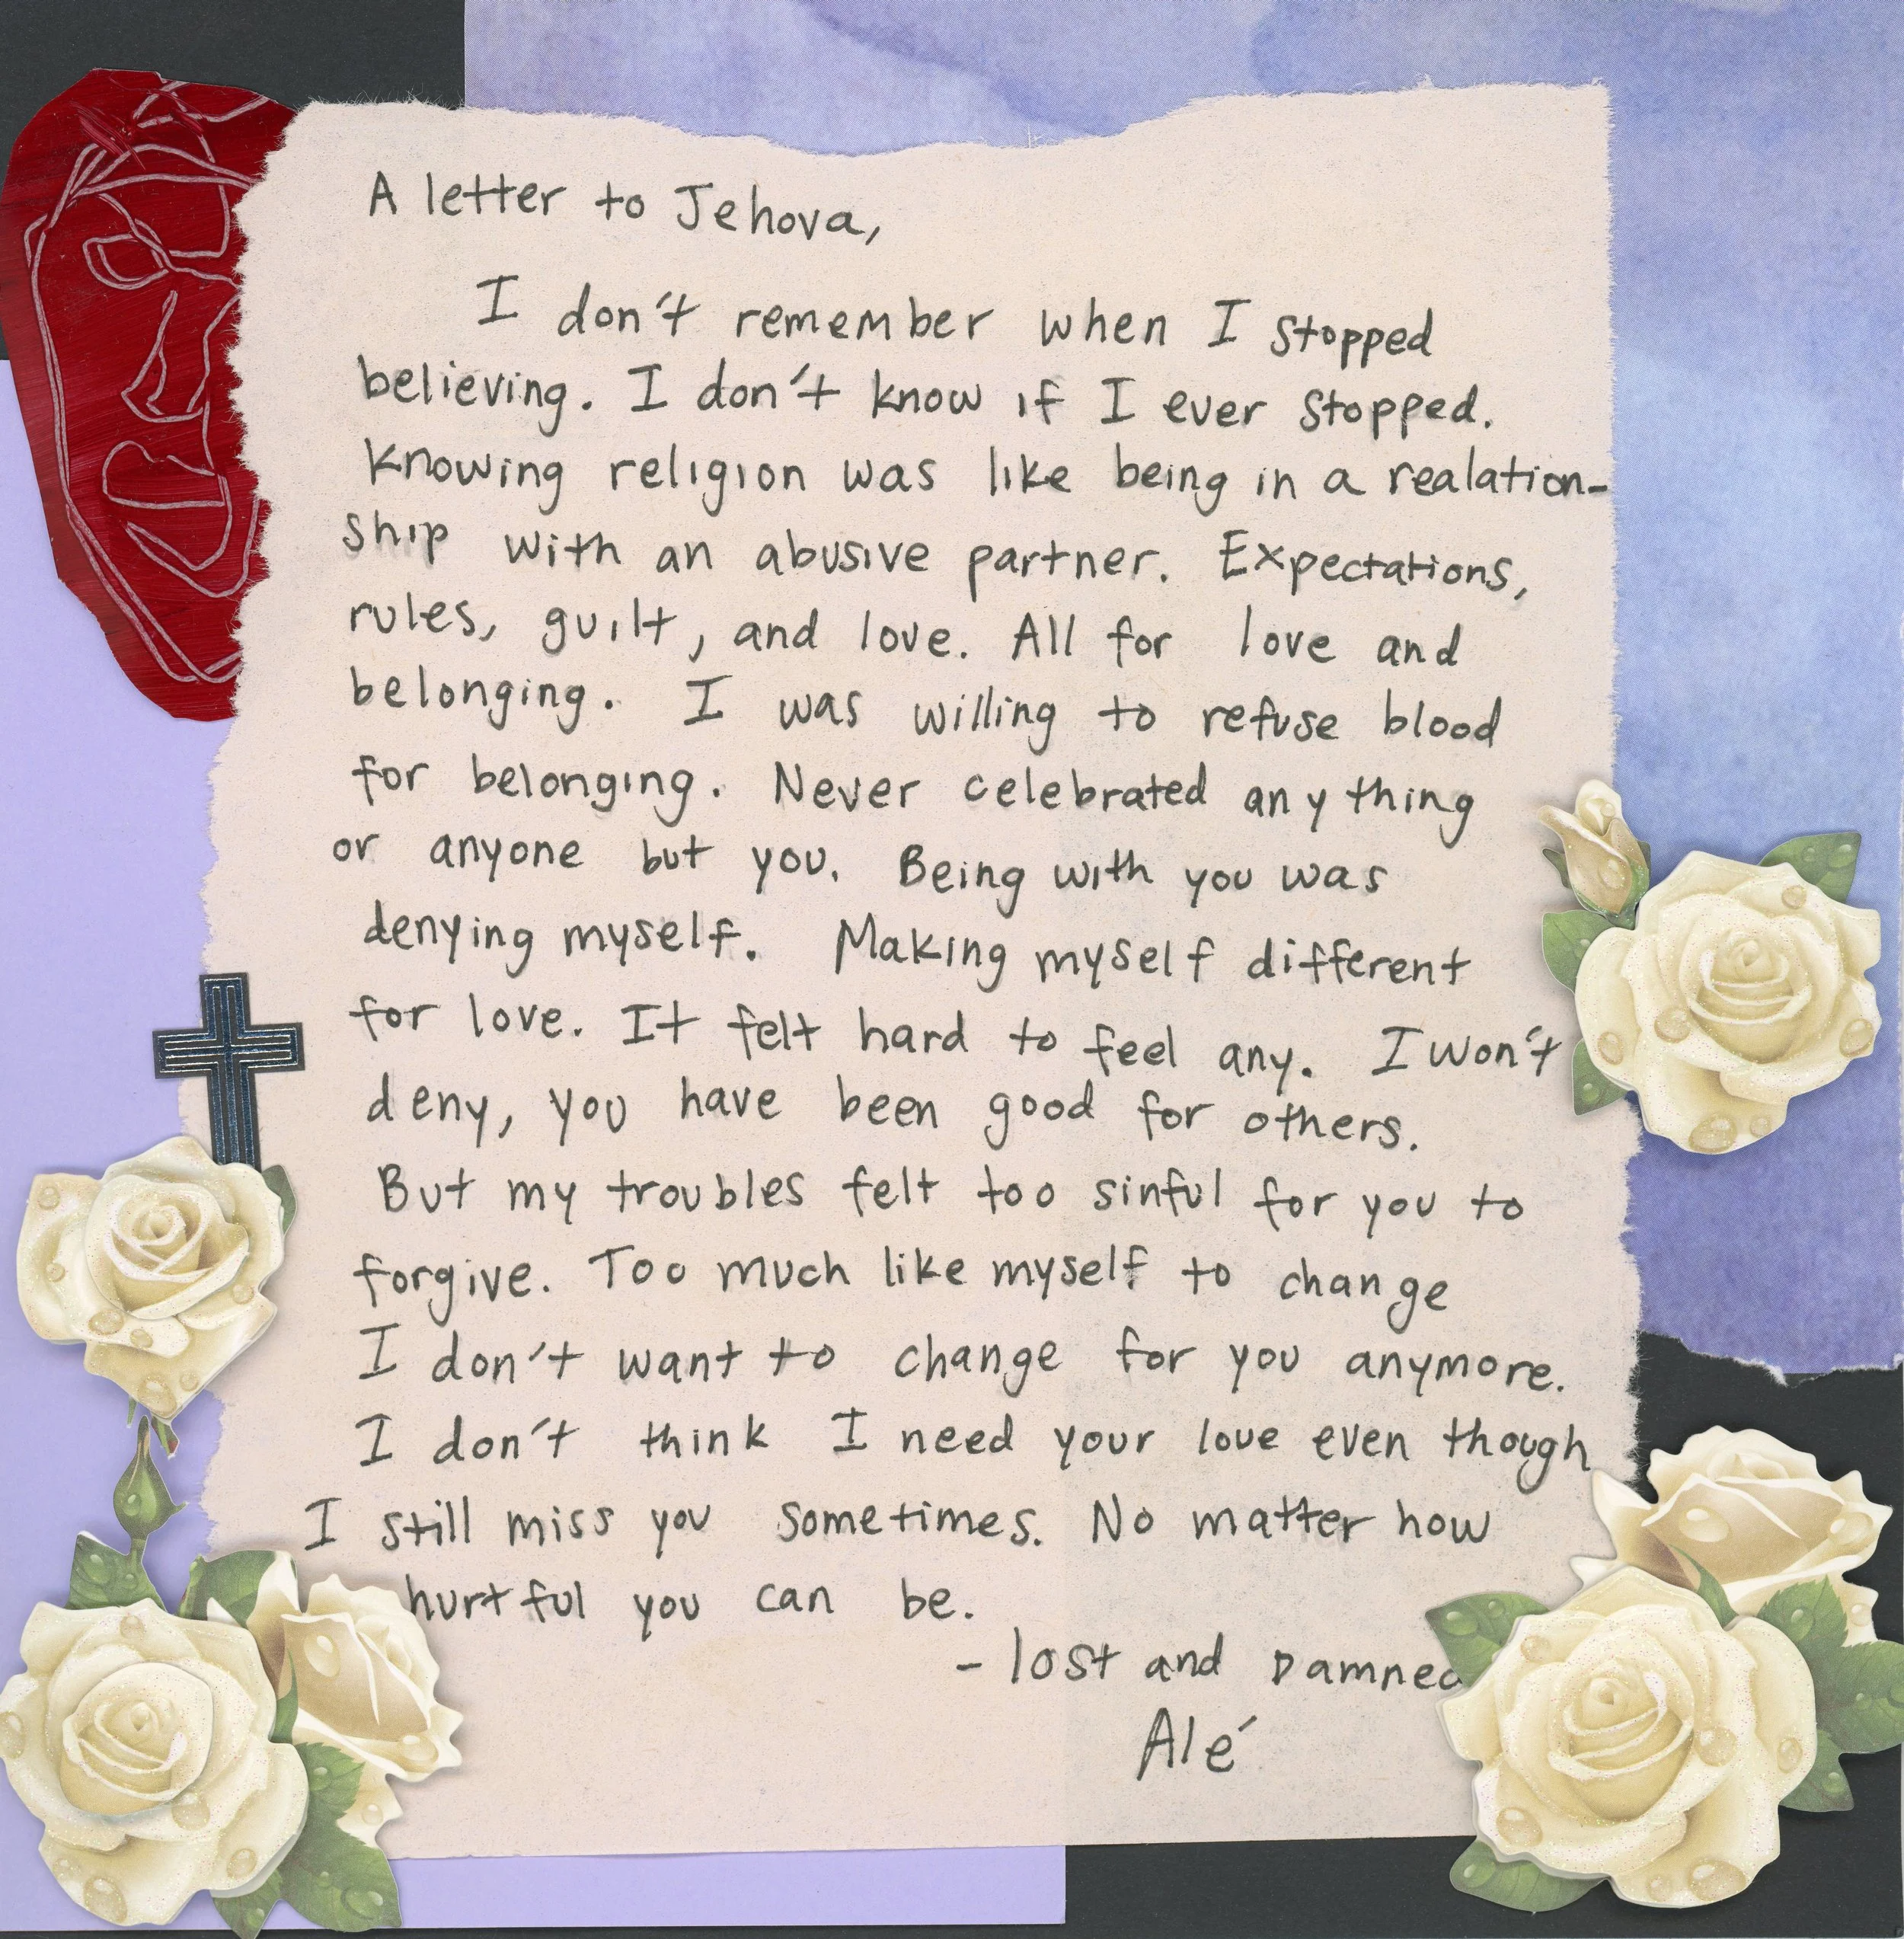 A letter to Jehova,
I don't remember when I stopped
believing. I don't know if I ever stopped.
Knowing religion was like being in a realation-
ship with an abusive partner. Expectations,
rules, guilt, and love. All for love and
belonging. I was willing to refuse blood
for belonging. Never celebrated anything
or anyone but you. Being with you was
denying myself. Making myself different
for love. It felt hard to feel any. I won't
deny, you have been good for others.
But my troubles felt too sinful for you to
forgive. Too much like myself to change
I don't want to change for you anymore.
I don't think I need your love even though
I still miss you sometimes. No matter how
hurtful you can be.
- lost and Damned
Alé